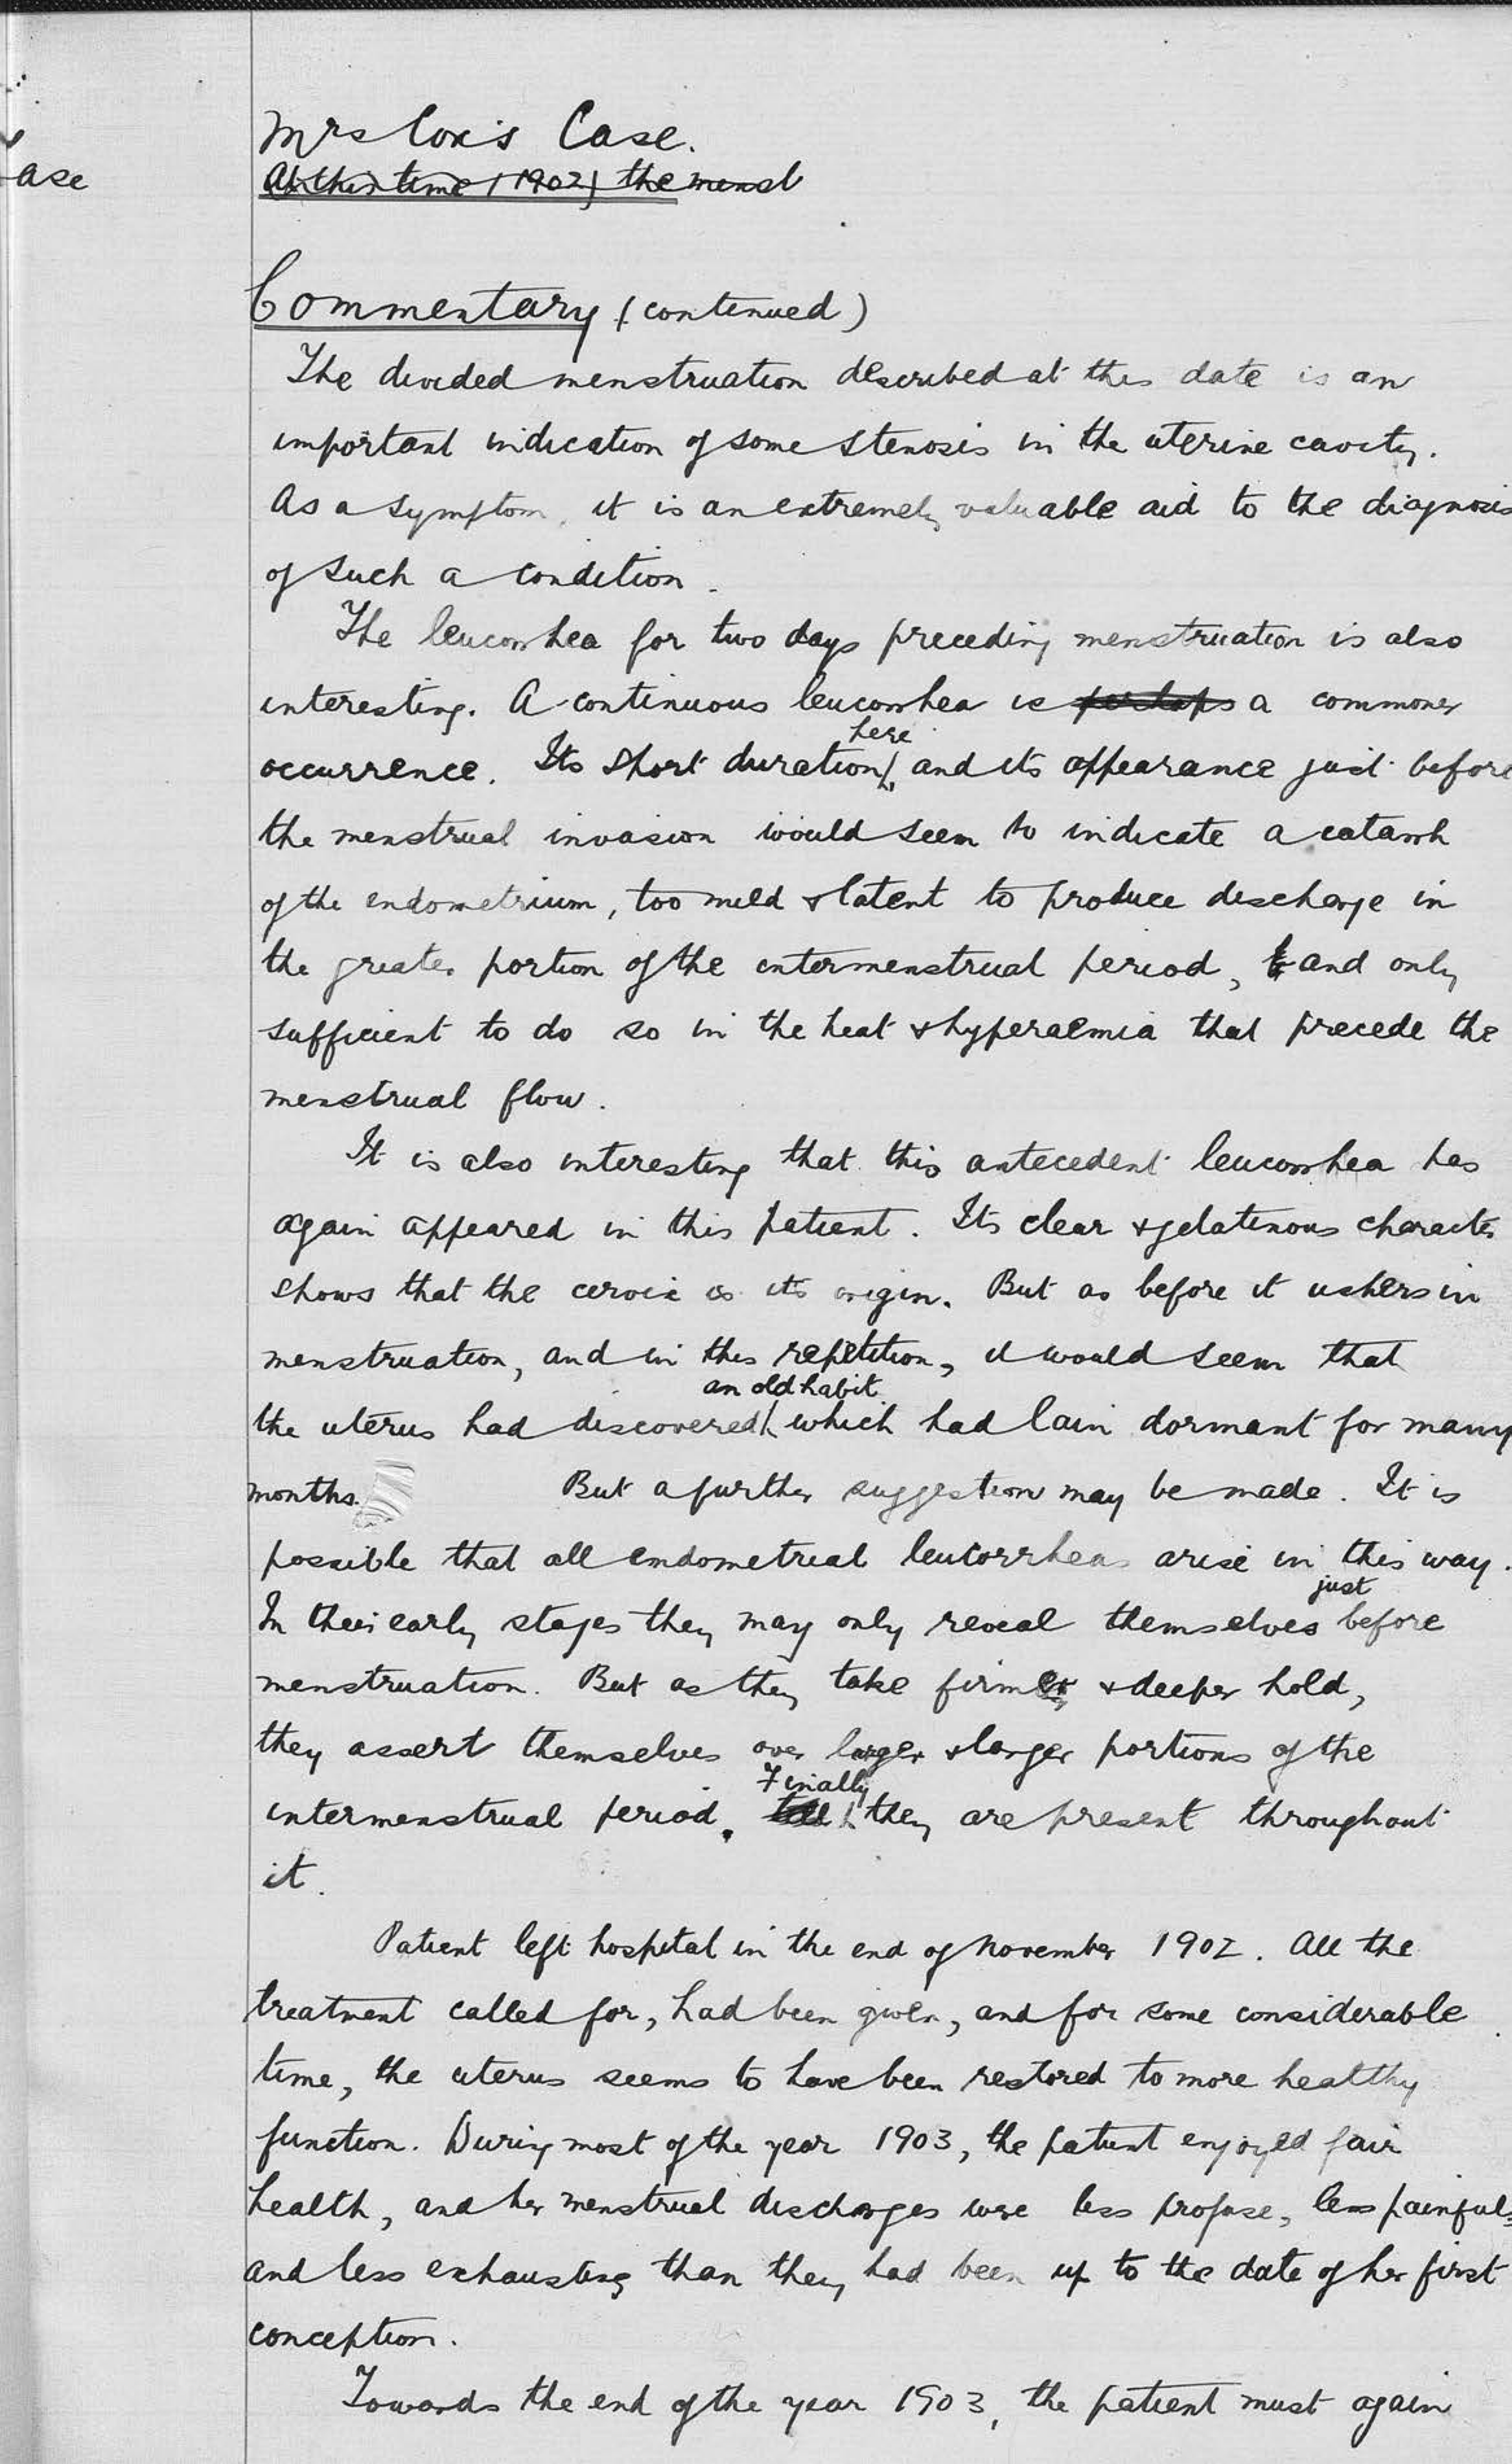 ase
Mrs Cox's Case.
At this time (1902) the menst
Commentary (continued)
The divided menstruation described at this date is an
important indication of some stenosis in the uterine cavity.
As a symptom, it is an extremely valuable aid to the diagnosis
of such a condition.
The leucorrhea for two days preceding menstruation is also
interesting. A continuous leucorrhea is perhaps a commoner
here
occurrence. Its short duration, and its appearance just before
the menstrual invasion would seem to indicate a catarrh
of the endometrium, too mild & latent to produce discharge in
the greater portion of the intermenstrual period, and only
sufficient to do so in the heat & hyperaemia that precede the
menstrual flow.
It is also interesting that this antecedent leucorrhea has
again appeared in this patient. Its clear & gelatinous character
shows that the cervix is its origin. But as before it ushers in
menstruation, and in this repetition, it would seem that
an old habit
the uterus had discovered which had lain dormant for many
months. But a further suggestion may be made. It is
possible that all endometrial leucorrheas arise in this way.
just
In their early stages they may only reveal themselves before
menstruation. But as they take firmer & deeper hold,
they assert themselves over larger & larger portions of the
Finally
intermenstrual period. till they are present throughout
it.
Patient left hospital in the end of November 1902. All the
treatment called for, had been given, and for some considerable
time, the uterus seems to have been restored to more healthy
function. During most of the year 1903, the patient enjoyed fair
health, and her menstrual discharges were less profuse, less painful,
and less exhausting than they had been up to the date of her first
conception.
Towards the end of the year 1903, the patient must again